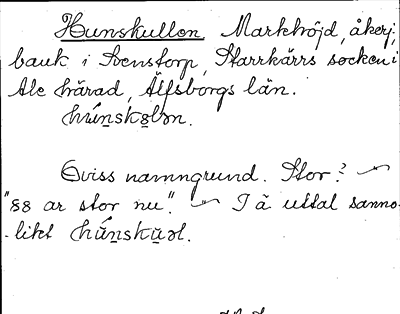 Hunskullen Markhöjd, åkerj.
bank i Svenstorp, Starrkärrs socken i
Ale härad, Älfsborgs län.
húnskolən.
Oviss namngrund. Stor?
"ss ar stor nu". I ä uttal sanno-
likt